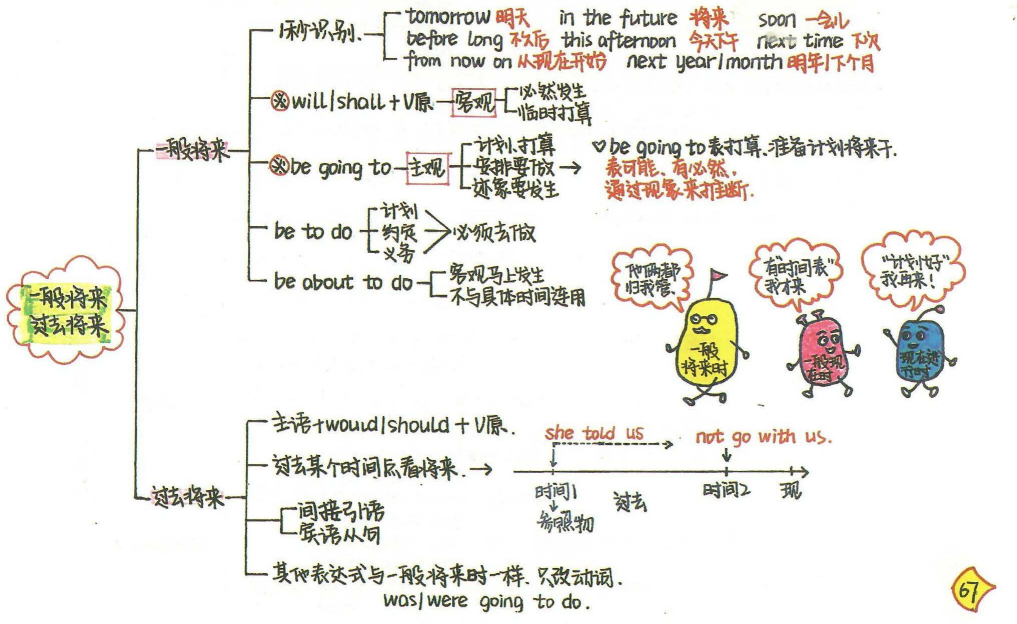 一般将来
过去将来
一般将来
1秒识别.
tomorrow 明天 in the future 将来 soon 一会儿
before long 不久后 this afternoon 今天下午 next time 下次
from now on 从现在开始 next year/month 明年/下个月
will/shall + V原
客观
必然发生
临时打算
be going to
主观
计划.打算
安排要做
迹象要发生
be going to 表打算.准备计划将来干.
表可能、有必然.
通过现象来推断.
be to do
计划
约定
义务
必须去做
be about to do
客观马上发生
不与具体时间连用
他俩都
归我管.
一般
将来时
有"时间表"
我才来
一般现
在时
"计划好"
我再来!
现在进
行时
过去将来
主语+would/should + V原.
过去某个时间点看将来.
she told us
not go with us.
时间1
过去
时间2
现
参照物
间接引语
宾语从句
其他表达式与一般将来时一样、只改动词.
was/were going to do.
67